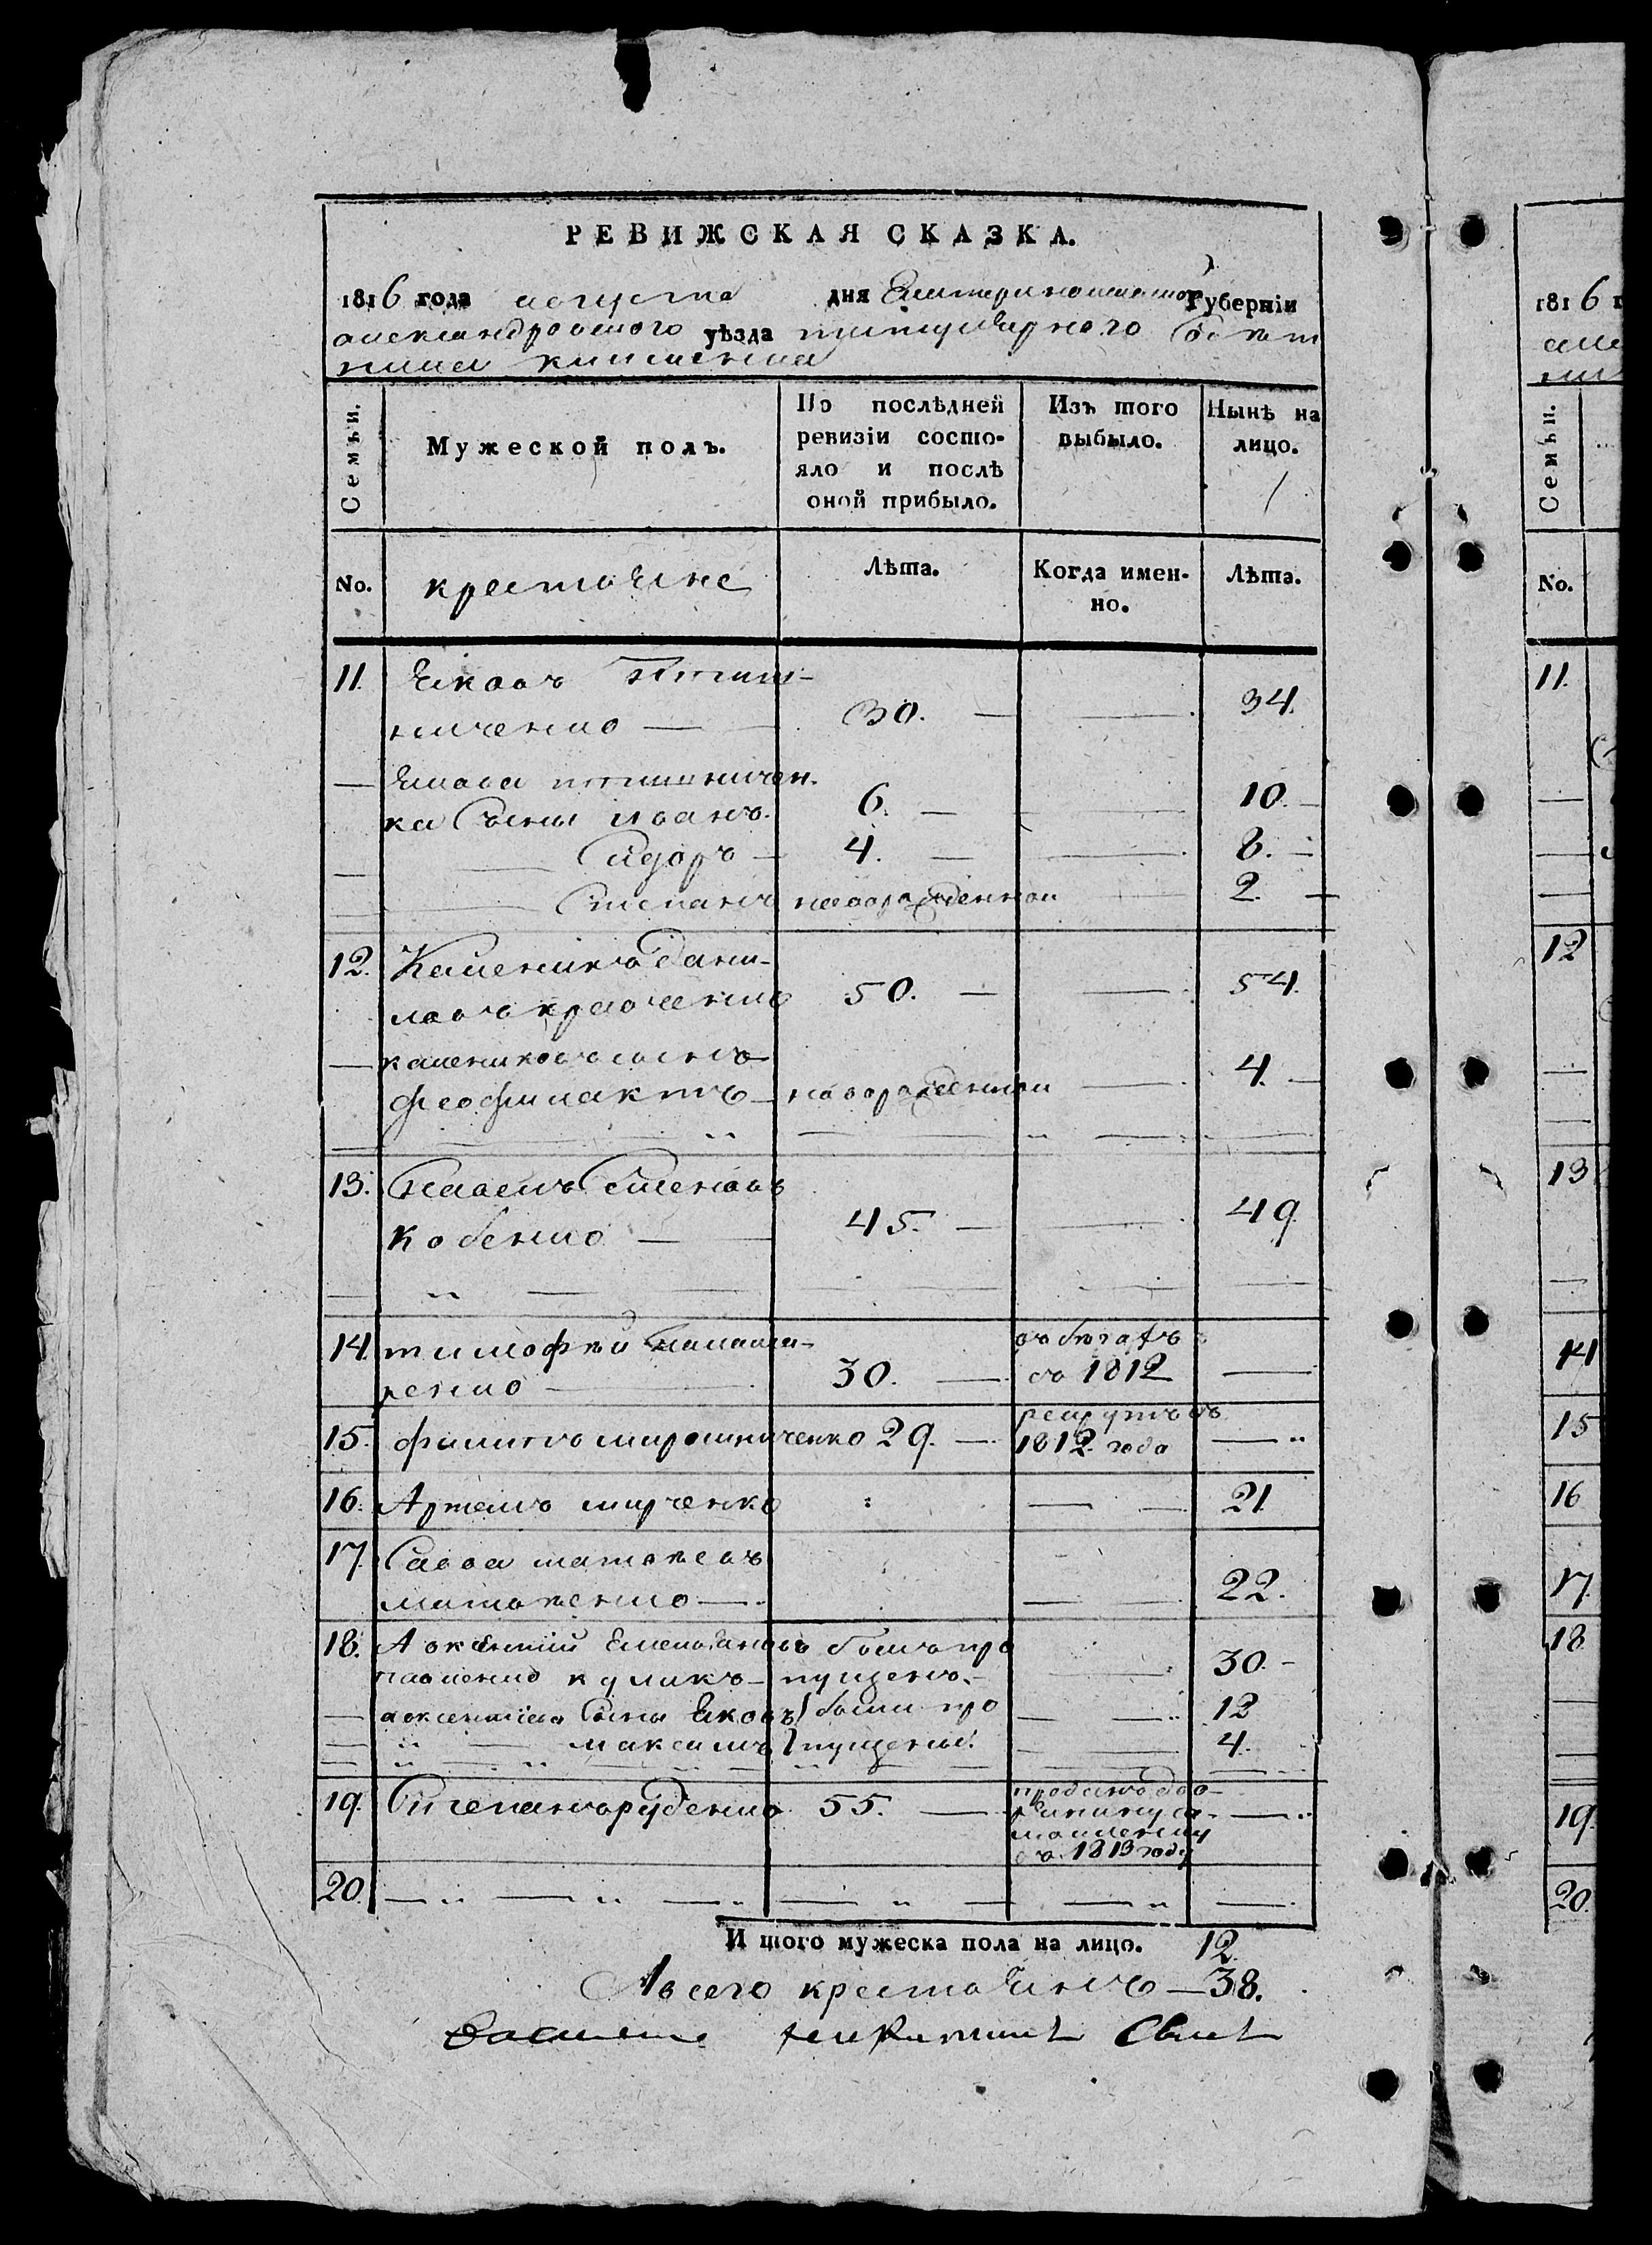 РЕВИЖСКАЯ СКАЗКА.
1816 года августа дня Екатеринославской Губерніи
александровского уѣзда титулярного Совѣт
ника
Семьи.
Мужеской полъ.
По послѣдней ревизіи состояло и послѣ оной прибыло.
Изъ того выбыло.
Нынѣ на лицо.
No.
крестьяне
Лѣта.
Когда именно.
Лѣта.
11. Яковъ
ниченко — 30. — — 34.
— Якова птишничен-
ка Сыны иванъ. 6. — — 10. —
— Сидоръ — 4. — — 8. —
— Степанъ новорожденной — 2. —
12. Каленикъ Дани-
ловъ кравченко 50. — — 54.
— калениковъ сынъ
феофилактъ — новорожденной — 4. —
13. Павелъ Семеновъ
Кобенко — 45. — — 49
14. тимофѣй
ренко — 30. — въ бѣгахъ
съ 1812 —
15. филипъ мирошниченко 29. — рекрутъ въ
1812 года —
16. Артемъ марченко — 21
17. Савва матвѣевъ
матвѣенко — — 22.
18. Авксентій Емельяновъ былъ про
павленко куликъ — пущенъ. — — 30. —
— авксентіева Сыны Яковъ были про — 12
— максимъ пущены. — 4.
19. Степанъ руденко 55. — проданъ дво-
рянину
въ 1813 году —
20. — — — —
И того мужеска пола на лицо. 12.
А всего крестьянъ — 38.